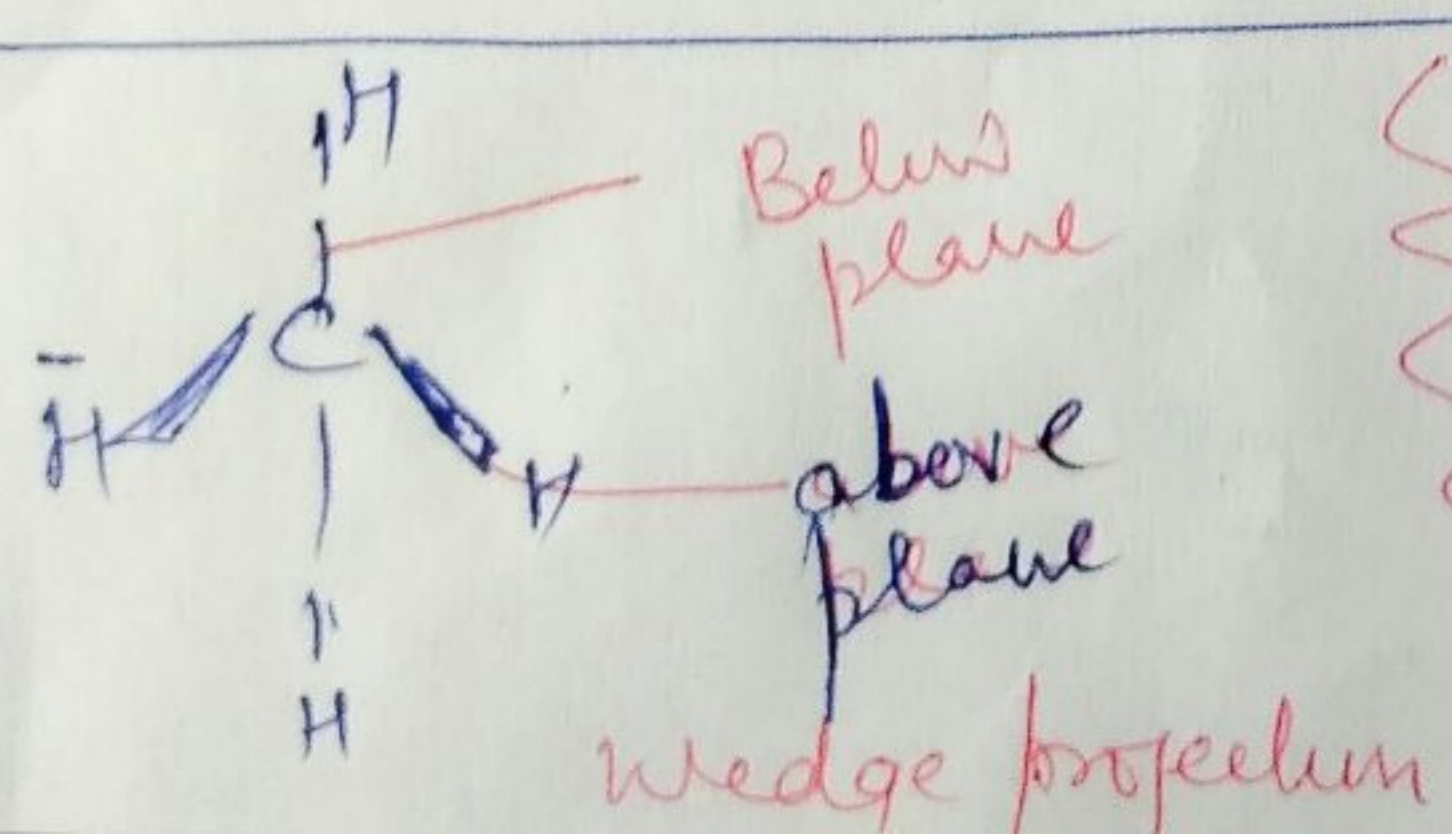 H
Below
plane
C
H
H
above
plane
H
Wedge projection